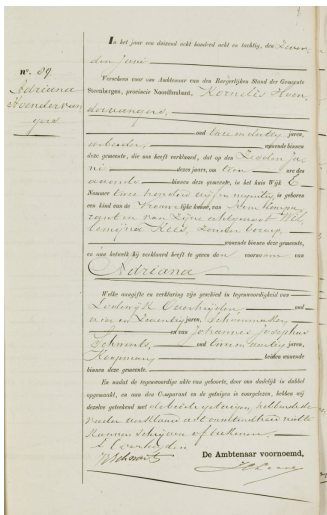 In het jaar een duizend acht honderd acht en tachtig, den Zeven
den Juni
nº. 89.
Adriana
Hoendervan
gers
Verscheen voor ons Ambtenaar van den Burgerlijken Stand der Gemeente
Steenbergen, provincie Noordbrabant, Kornelis Hoen
dervangers,
oud twee en dertig jaren,
arbeider, wonende binnen
deze gemeente, die ons heeft verklaard, dat op den Zesden Ju
ni dezes jaars, om tien ure des
avonds binnen deze gemeente, in het huis Wijk E
Nommer twee honderd vijf en negentig is geboren
een kind van de Vrouwelijke kunne, van hem Kompa
rant en van zijne echtgenoot Wil
lemijna Kees, zonder beroep,
wonende binnen deze gemeente,
en aan hetwelk hij verklaart heeft te geven den voornaam van
Adriana
Welke aangifte en verklaring zijn geschied in tegenwoordigheid van
Lodewijk oud
en twintig jaren, Schoenmaker
en van Johannes Josephus
Schwarts, oud jaren,
Koopman, beiden wonende
binnen deze gemeente.
En nadat de tegenwoordige akte van geboorte, door ons dadelijk in dubbel
opgemaakt, en aan den Comparant en de getuigen is voorgelezen, hebben wij
dezelve geteekend met de beide getuigen, hebbende de
vader verklaard uit onkunde niet te
kunnen schrijven of teekenen.
De Ambtenaar voornoemd,